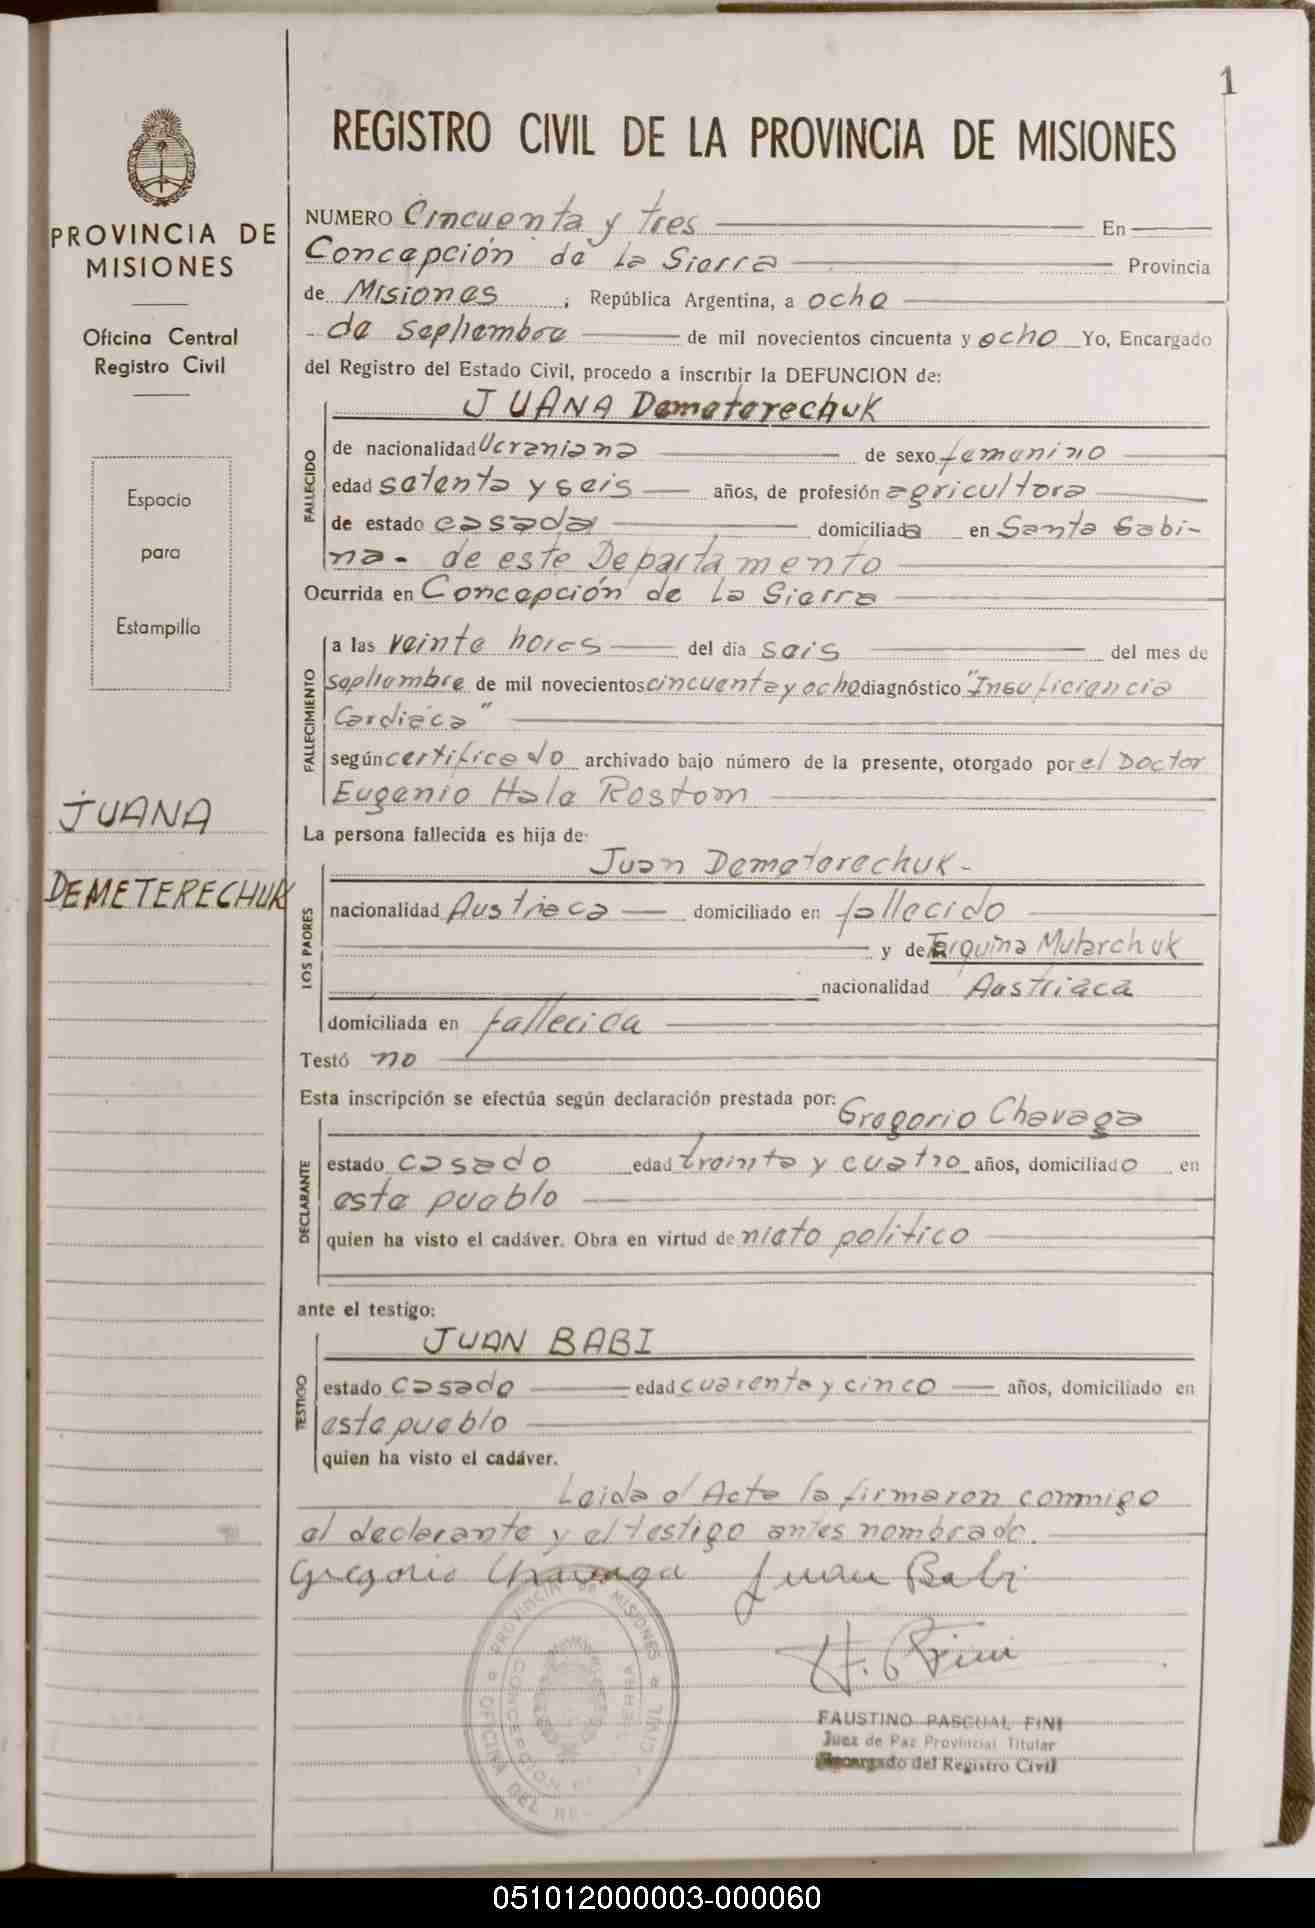 1
REGISTRO CIVIL DE LA PROVINCIA DE MISIONES
PROVINCIA DE
MISIONES
Oficina Central
Registro Civil
Espacio
para
Estampilla
JUANA
DEMETERECHUK
NUMERO Cincuenta y tres En
Concepción de la Sierra Provincia
de Misiones, República Argentina, a ocho
de Septiembre de mil novecientos cincuenta y ocho Yo, Encargado
del Registro del Estado Civil, procedo a inscribir la DEFUNCION de:
JUANA Demeterechuk
FALLECIDO
de nacionalidad Ucraniana de sexo femenino
edad setenta y seis años, de profesión agricultora
de estado casada domiciliada en Santa Sabi-
na- de este Departamento
Ocurrida en Concepción de la Sierra
FALLECIMIENTO
a las veinte horas del dia seis del mes de
septiembre de mil novecientos cincuenta y ocho diagnóstico "Insuficiencia
Cardiáca"
según certificado archivado bajo número de la presente, otorgado por el Doctor
Eugenio Hala Rostom
La persona fallecida es hija de:
LOS PADRES
Juan Demeterechuk-
nacionalidad Austriaca domiciliado en fallecido
y de Mutarchuk
nacionalidad Austriáca
domiciliada en fallecida
Testó no
Esta inscripción se efectúa según declaración prestada por:
DECLARANTE
Gregorio Chavaga
estado casado edad treinta y cuatro años, domiciliado en
este pueblo
quien ha visto el cadáver. Obra en virtud de nieto politico
ante el testigo:
TESTIGO
JUAN BABI
estado casado edad cuarenta y cinco años, domiciliado en
este pueblo
quien ha visto el cadáver.
Leida el Acta la firmaron conmigo
el declarante y el testigo antes nombrado.
Gregorio Chavaga Juan Babi
PROVINCIA DE MISIONES
CONCEPCION
CIVIL
OFICINA DEL
FAUSTINO PASCUAL FINI
Juez de Paz Provincial Titular
Encargado del Registro Civil
051012000003-000060